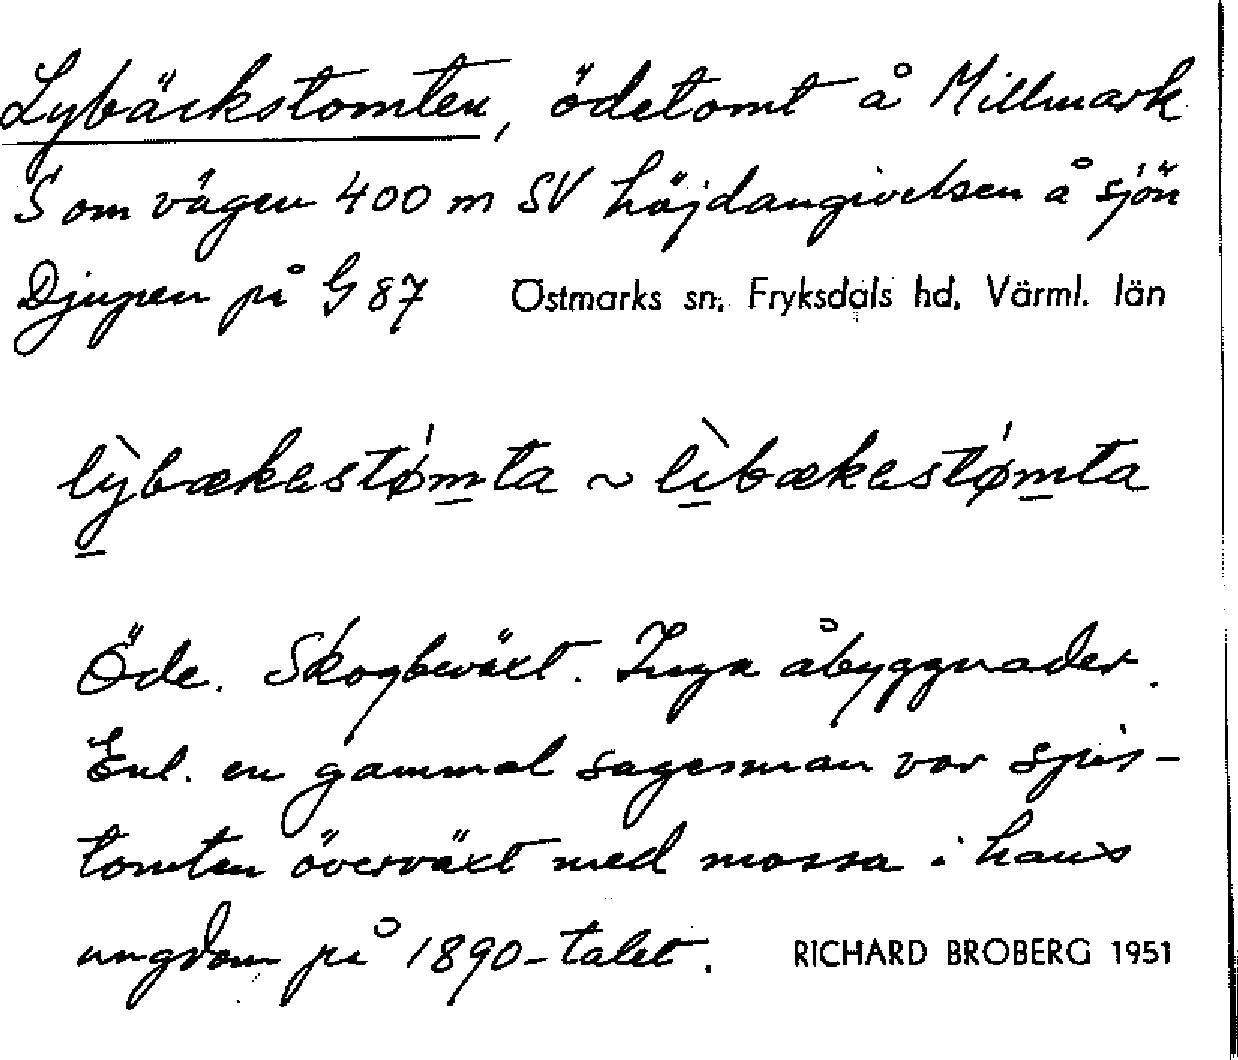 Lybäckstomten, ödetomt å Millmark
S om vägen 400 m SV höjdangivelsen å sjön
Djupen på G 87 Östmarks sn, Fryksdals hd, Värml. län
lỳbækastø̍mta ~ lìbækastø̍mta
Öde. Skogbeväxt. Inga åbyggnader.
Enl. en gammal sagesman var spis-
tomten överväxt med mossa i hans
ungdom på 1890-talet. RICHARD BROBERG 1951